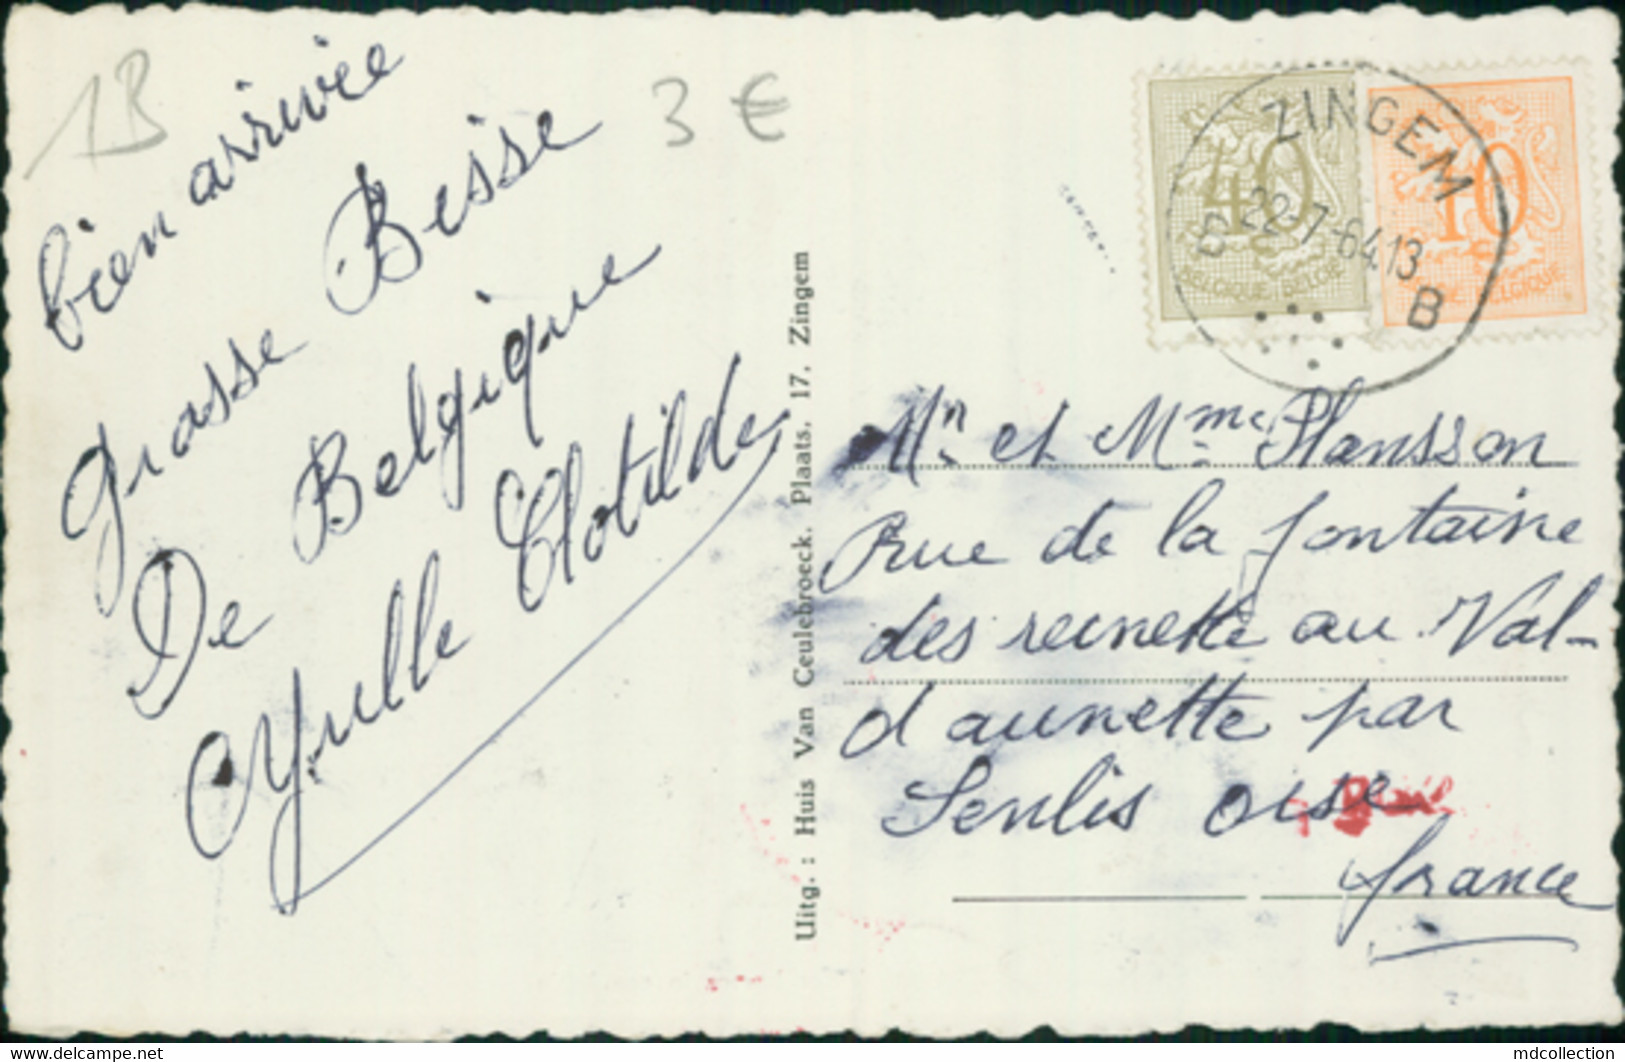 1B
3 €
bien arrivée
grosse Bisse
De Belgique
Clotilde
Uitg. : Huis Van Ceulebroeck. Plaats. 17. Zingem
40
BELGIQUE BELGIE
10
BELGIQUE
ZINGEM
22-7-64 13
B B
Mr et Mme Plansson
Rue de la fontaine
des reinette au Val-
d aunette par
Senlis oise
france
www.delcampe.net
mdcollection